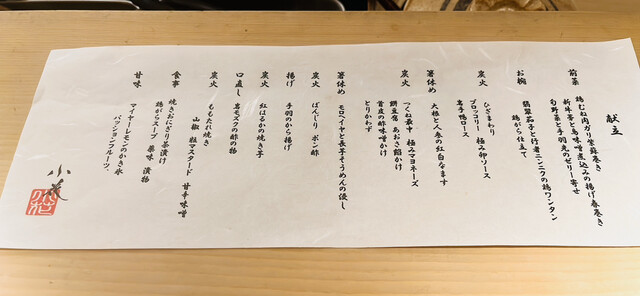 献立
前菜
鶏むね肉ガリ紫蘇巻き
新牛蒡と鳥味噌煮込みの揚げ春巻き
旬野菜と手羽先のゼリー寄せ
お椀
翡翠茄子と行者ニンニクの鶏ワンタン
鶏がら仕立て
炭火
ひざまわり
ブロッコリー 極み卵ソース
岩手鴨ロース
箸休め
大根と人参の紅白なます
炭火
つくね最中 極みマヨネーズ
銀皮 あおさ餡かけ
首皮の酢味噌かけ
とりかわず
箸休め
モロヘイヤと長芋そうめんの優し
炭火
ぼんじり ポン酢
揚げ
手羽のから揚げ
炭火
紅はるかの焼き芋
口直し
岩モズクの酢の物
炭火
ももたれ焼き
山椒 粒マスタード 甘辛味噌
食事
焼きおにぎり茶漬け
鶏がらスープ 薬味 漬物
甘味
マイヤーレモンのかき氷
パッションフルーツ、